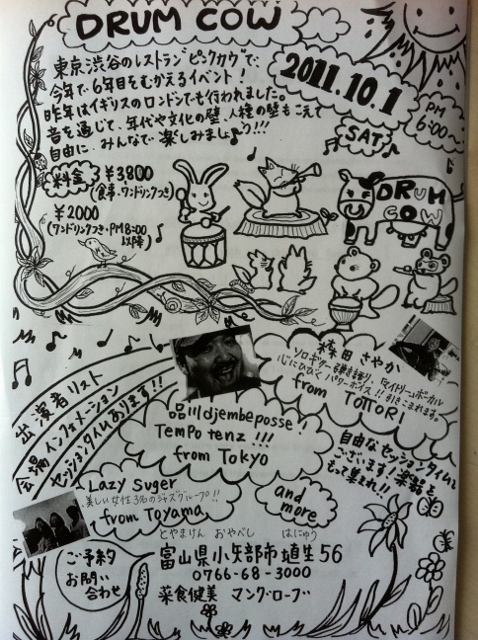 DRUM COW
東京渋谷のレストラン"ピンクカウ"で、
今年で6年目をむかえるイベント!
昨年はイギリスのロンドンでも行われました。
音を通じて、年代や文化の壁、人種の壁もこえて
自由に、みんなで楽しみましょう!!!
2011.10.1
SAT
PM
6:00~
料金
¥3800
(食事・ワンドリンクつき)
¥2000
(ワンドリンクつき・PM8:00
以降)
DRUM
COW
出演者リスト
会場インフォメーション
セッションタイムあります!!
品川djembeposse!
TEMPO tenz!!!
from TOKYO
田さやか
ソロギター弾き語り、マイドリームボーカル
心にひびくパワーボイス!!引きこまれます。
from TOTTORI
自由なセッションタイムも
ございます!楽器を
もって集まれ!!
Lazy Suger
美しい女性3名のジャズグループ!!
from TOYAMA
and
more
ご予約
お問い
合わせ
とやまけん おやべし はにゅう
富山県小矢部市埴生56
0766-68-3000
薬食健美 マング・ローブ